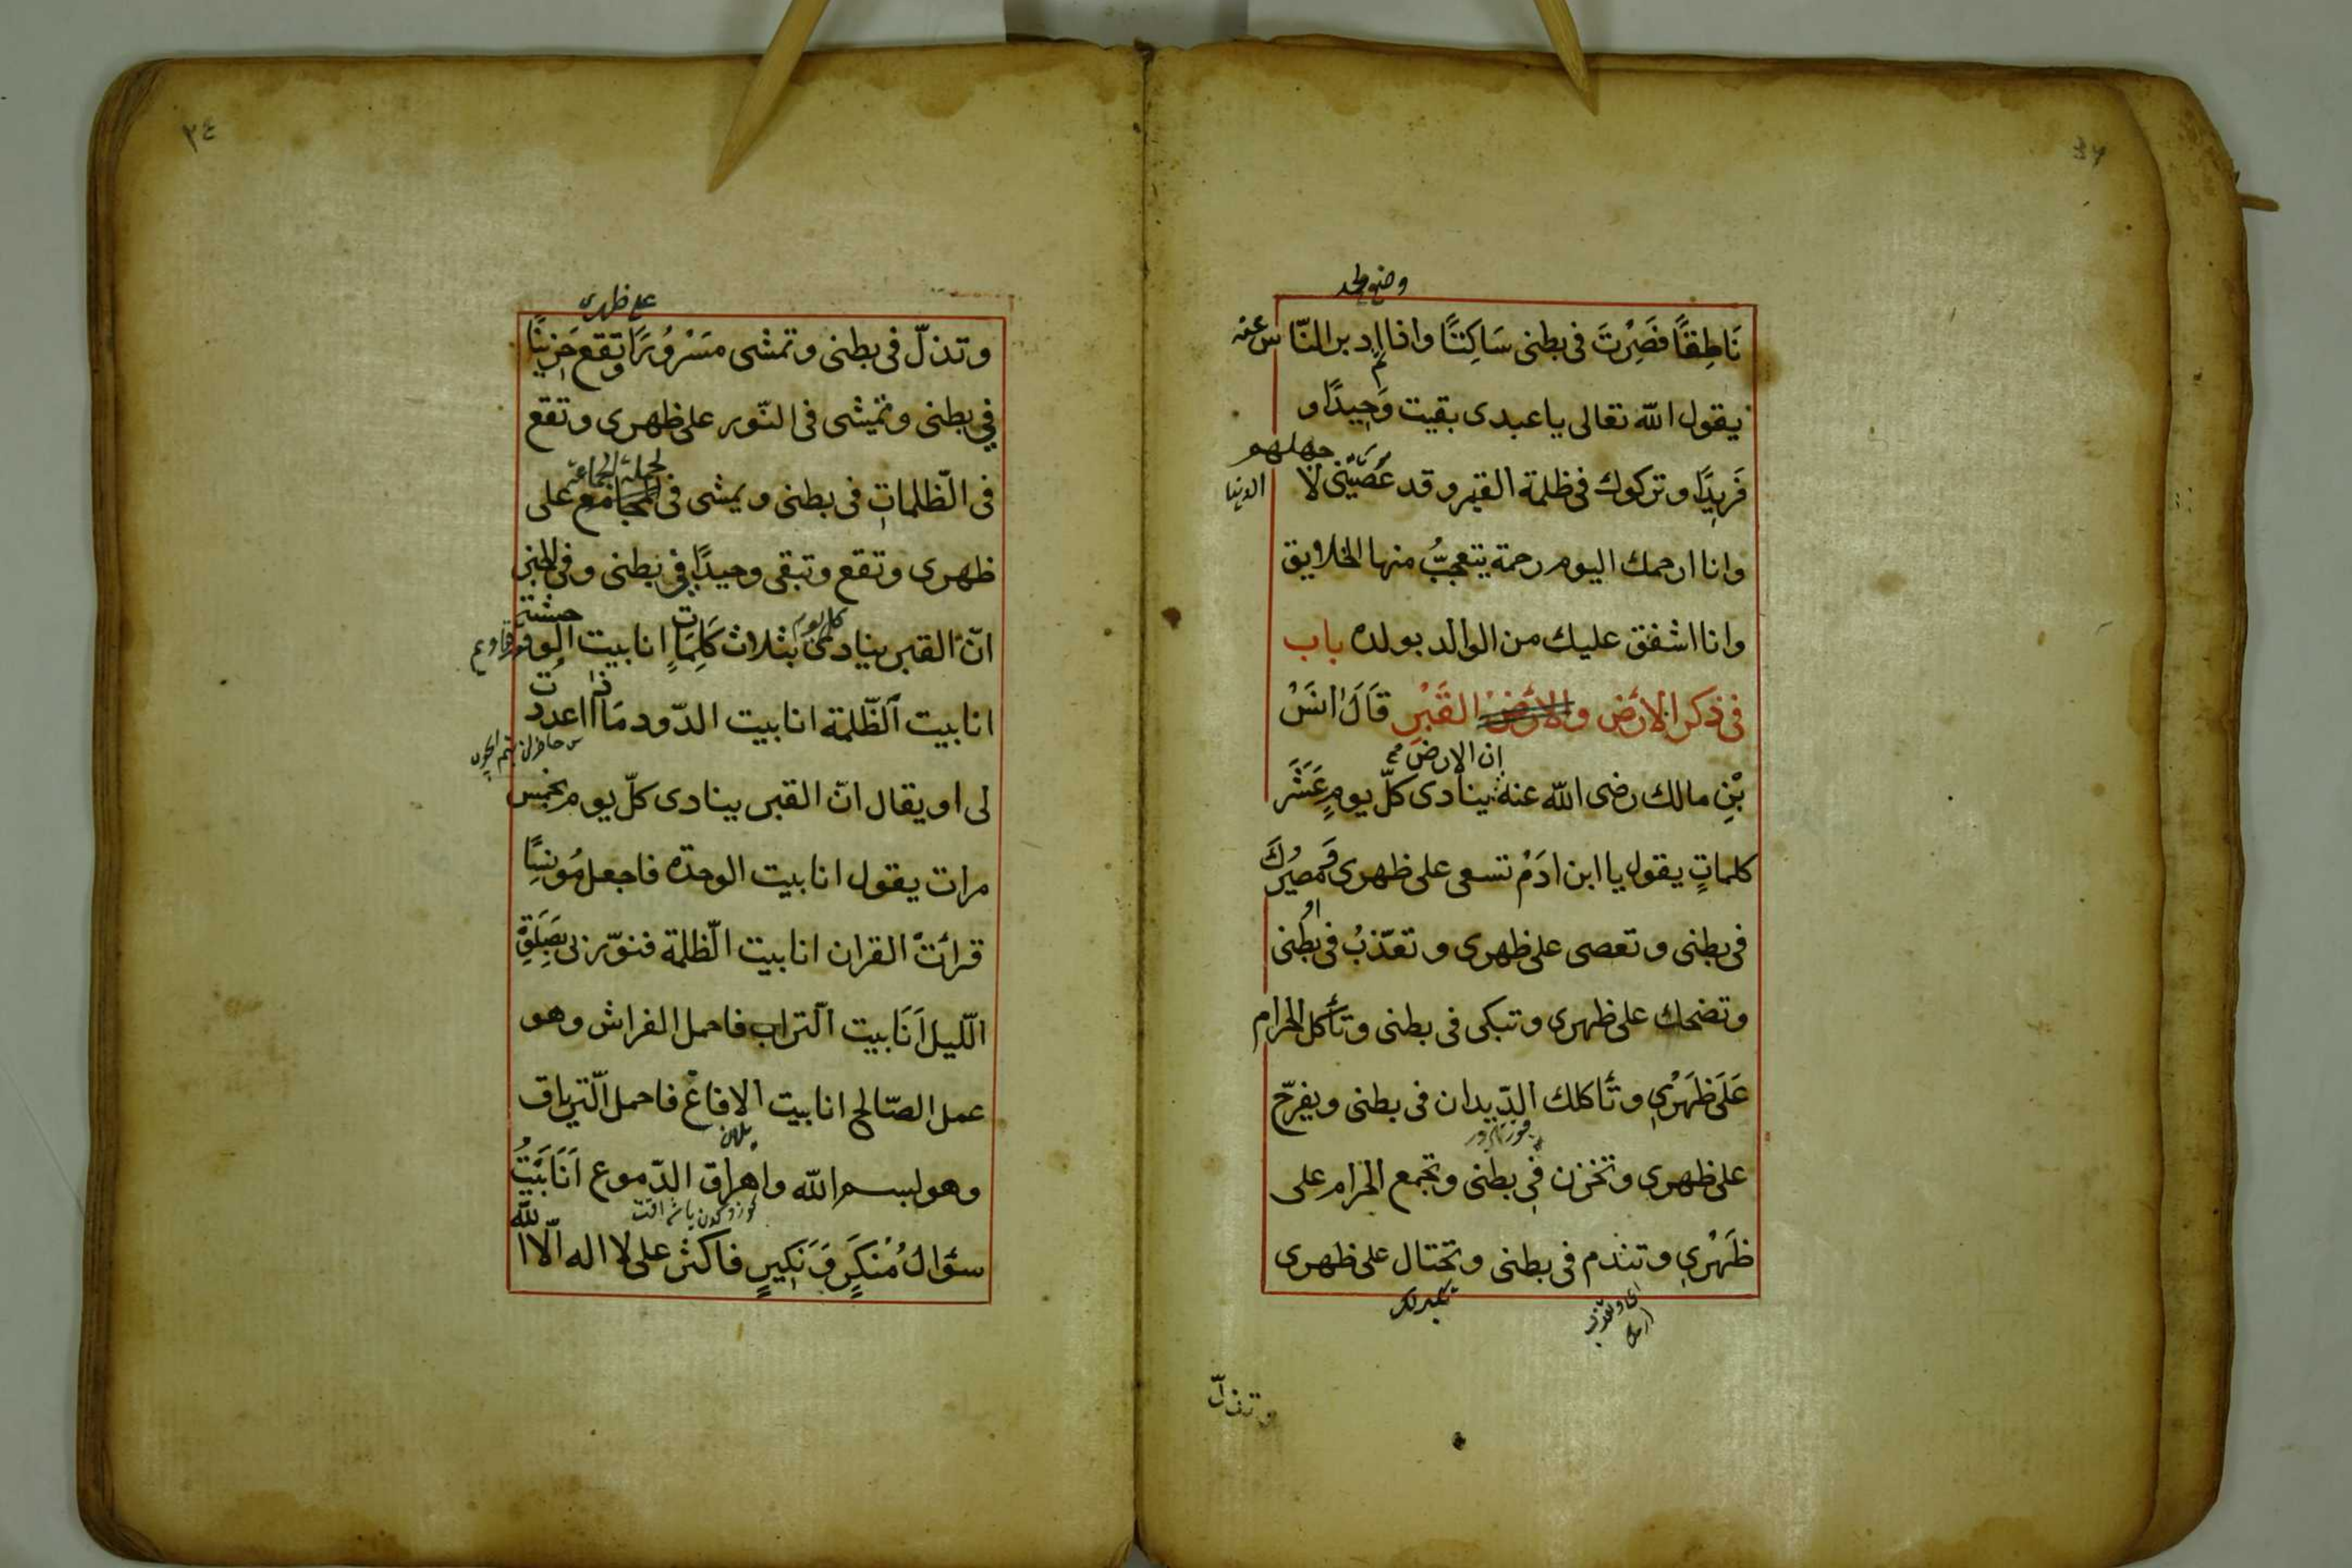 نَاطِقًا فَصِرْتَ فى بطنى سَاكِتًا واذا ادبر النّاس عنه
يقول الله تعالى يا عبدى بقيت وَحِيدًا و
فَرِيدًا وتركوك فى ظلمة القبر وقد عَصَيْتَنِى لا جهلهم
الدنيا
وانا ارحمك اليوم رحمة يتعجبُّ منها الخلايق
وانا اشفق عليك من الوالد بولده باب
فى ذكر الارض والارض القَبْرِ قَالَ انَسْ
ان الارض
بْنِ مالك رضى الله عنه ينادى كلّ يومٍ عَشَرَ
كلماتٍ يقول يا ابن ادَمْ تسعى على ظهرى وَمصيرُكَ
فى بطنى و تعصى على ظهرى و تعذّبُ فى بطنى
وتضحك على ظهرى وتبكى فى بطنى وتأكل الحرام
عَلَى ظَهْرِى وتَأكلك الدّيدان فى بطنى ويفرّح
على ظهرى وتخزن فى بطنى وتجمع الحرام على
ظَهْرِى وتندم فى بطنى وتختال على ظهرى
وتذلّ
٣٤
على ظهرى
وتذلّ فى بطنى وتمشى مَسْرُورًا وتقع حَزِينًا
فى بطنى وتمشى فى النّور على ظهرى وتقع
فى الظّلماتِ فى بطنى ويمشى فى المجامع على
ظهرى وتقع وتبقى وحيدًا فى بطنى وفى الخبر
كل يوم
انّ القبر ينادى بثلاث كَلِمَاتٍ انا بيت الو
انا بيت الظّلمة انا بيت الدّود مَا ذا اعددت
لى او يقال انّ القبر ينادى كلّ يوم بخمس
مرات يقول انا بيت الوحدة فاجعل مُونِسًا
قرائت القران انا بيت الظّلمة فنوّرنى بِصَلَوةِ
اللّيل اَنَا بيت التراب فاحمل الفراش وهو
عمل الصّالح انا بيت الافاع فاحمل التّرياق
وهو بسم الله واهراق الدّموع اَنَا بَيْتُ
سؤال مُنْكَرٍ وَنَكِيرٍ فاكثر على لا اله الّا الله